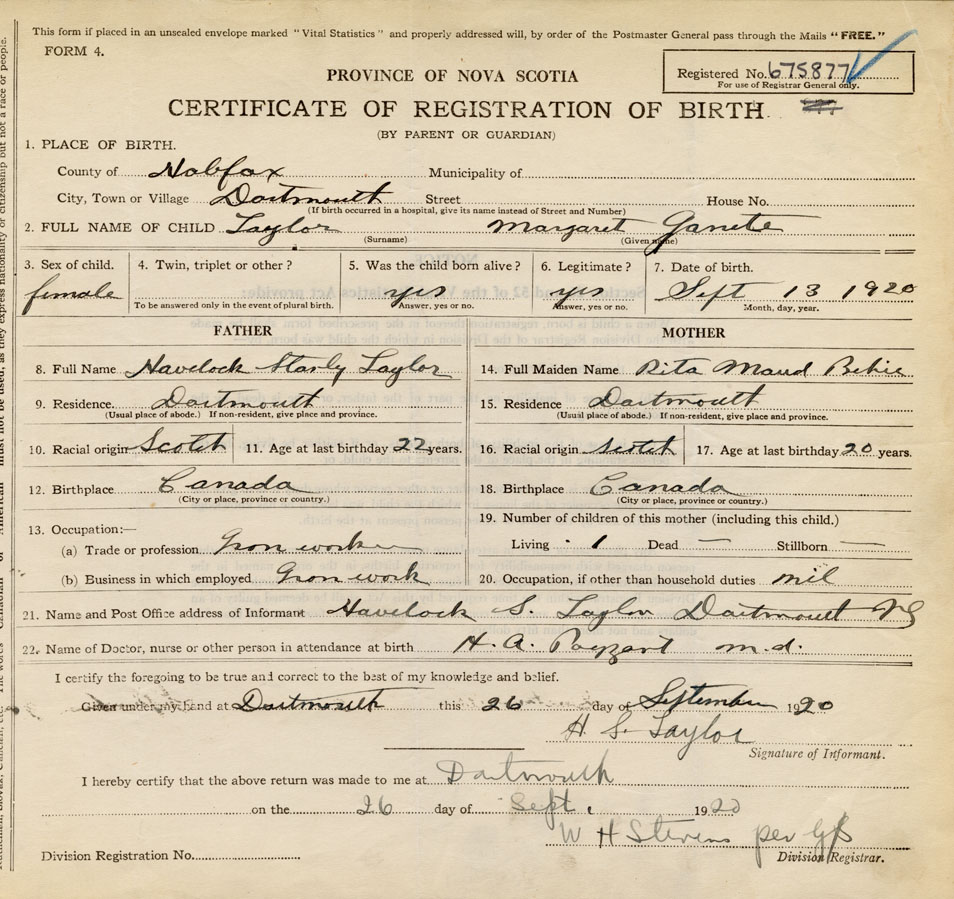 This form if placed in an unsealed envelope marked "Vital Statistics" and properly addressed will, by order of the Postmaster General pass through the Mails "FREE."
FORM 4.
Registered No. 675877
For use of Registrar General only.
PROVINCE OF NOVA SCOTIA
CERTIFICATE OF REGISTRATION OF BIRTH
(BY PARENT OR GUARDIAN)
1. PLACE OF BIRTH.
County of Halifax Municipality of
City, Town or Village Dartmouth Street House No.
(If birth occurred in a hospital, give its name instead of Street and Number)
2. FULL NAME OF CHILD Taylor Margaret Ganete
(Surname) (Given name)
3. Sex of child. 4. Twin, triplet or other? 5. Was the child born alive? 6. Legitimate? 7. Date of birth.
female yes yes Sept 13 1920
To be answered only in the event of plural birth. Answer, yes or no. Answer, yes or no. Month, day, year.
FATHER MOTHER
8. Full Name Havelock Taylor 14. Full Maiden Name Rita Maud
9. Residence. Dartmouth 15. Residence Dartmouth
(Usual place of abode.) If non-resident, give place and province. (Usual place of abode.) If non-resident, give place and province.
10. Racial origin Scotch 11. Age at last birthday 22 years. 16. Racial origin scotch 17. Age at last birthday 20 years.
12. Birthplace Canada 18. Birthplace Canada
(City or place, province or country.) (City or place, province or country.)
13. Occupation:— 19. Number of children of this mother (including this child.)
(a) Trade or profession Iron worker Living 1 Dead — Stillborn —
(b) Business in which employed Iron work 20. Occupation, if other than household duties nil
21. Name and Post Office address of Informant Havelock S. Taylor Dartmouth NS
22. Name of Doctor, nurse or other person in attendance at birth H. A. Payzant m.d.
I certify the foregoing to be true and correct to the best of my knowledge and belief.
Given under my hand at Dartmouth this 26 day of September 1920
H. S. Taylor
Signature of Informant.
I hereby certify that the above return was made to me at Dartmouth
on the 26 day of Sept. 1920
W H Stevens per
Division Registrar.
Division Registration No.